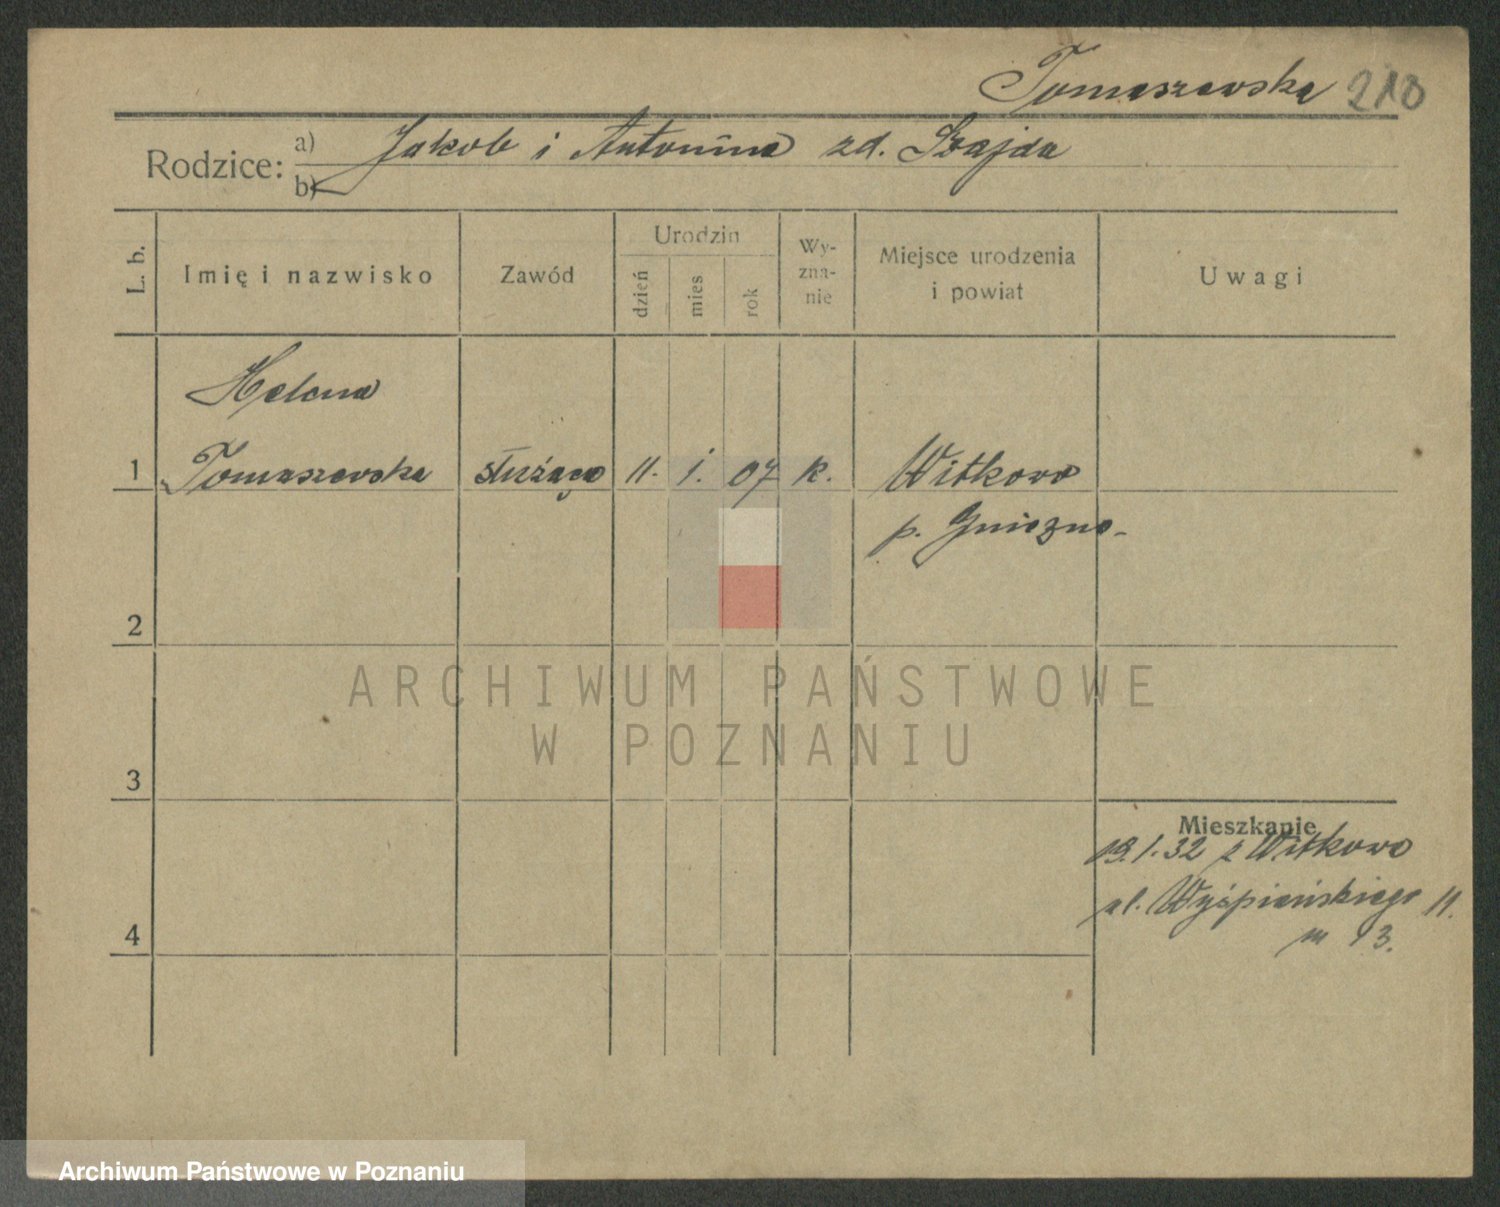 Tomaszewska 210
Rodzice: a) Jakob i Antonina zd. Szajda
b)
L. b. Imię i nazwisko Zawód Urodzin dzień mies rok Wy-zna-nie Miejsce urodzenia i powiat Uwagi
Helena
1 Tomaszewska służąca 11. 1. 07 k. Witkowo
p. Gniezno-
2
3
Mieszkanie
19.1.32 z Witkowo
ul. Wyśpiańskiego 11.
4 m 13.
ARCHIWUM PAŃSTWOWE
W POZNANIU
Archiwum Państwowe w Poznaniu